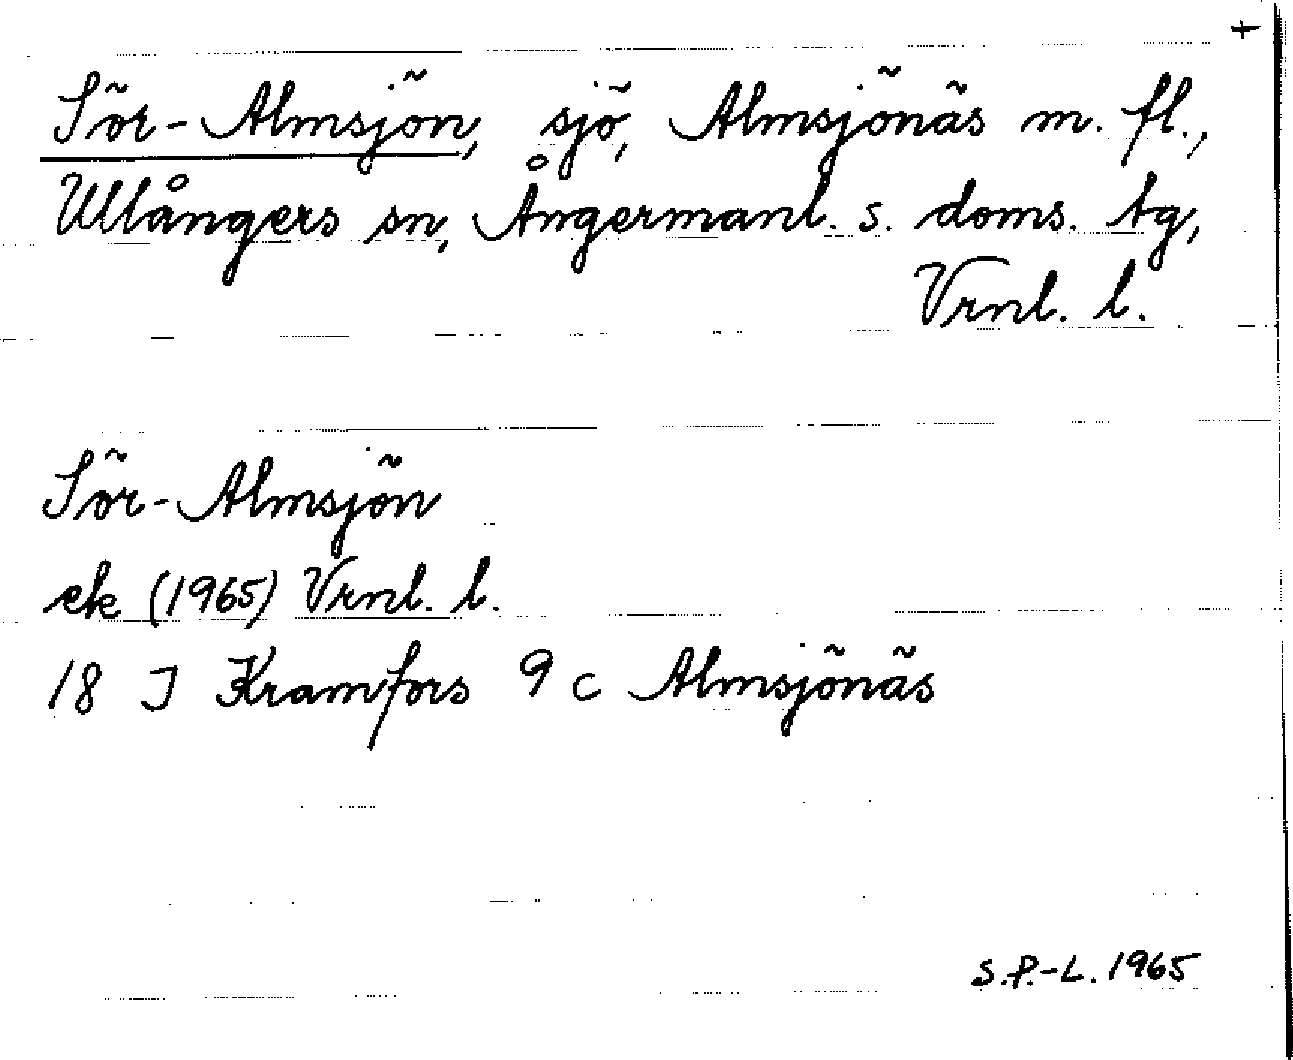 +
Sör-Almsjön, sjö, Almsjönäs m. fl.,
Ullångers sn, Ångermanl. s. doms. tg,
Vrnl. l.
Sör-Almsjön
ek (1965) Vrnl. l.
18 J Kramfors 9 c Almsjönäs
S.P.-L. 1965